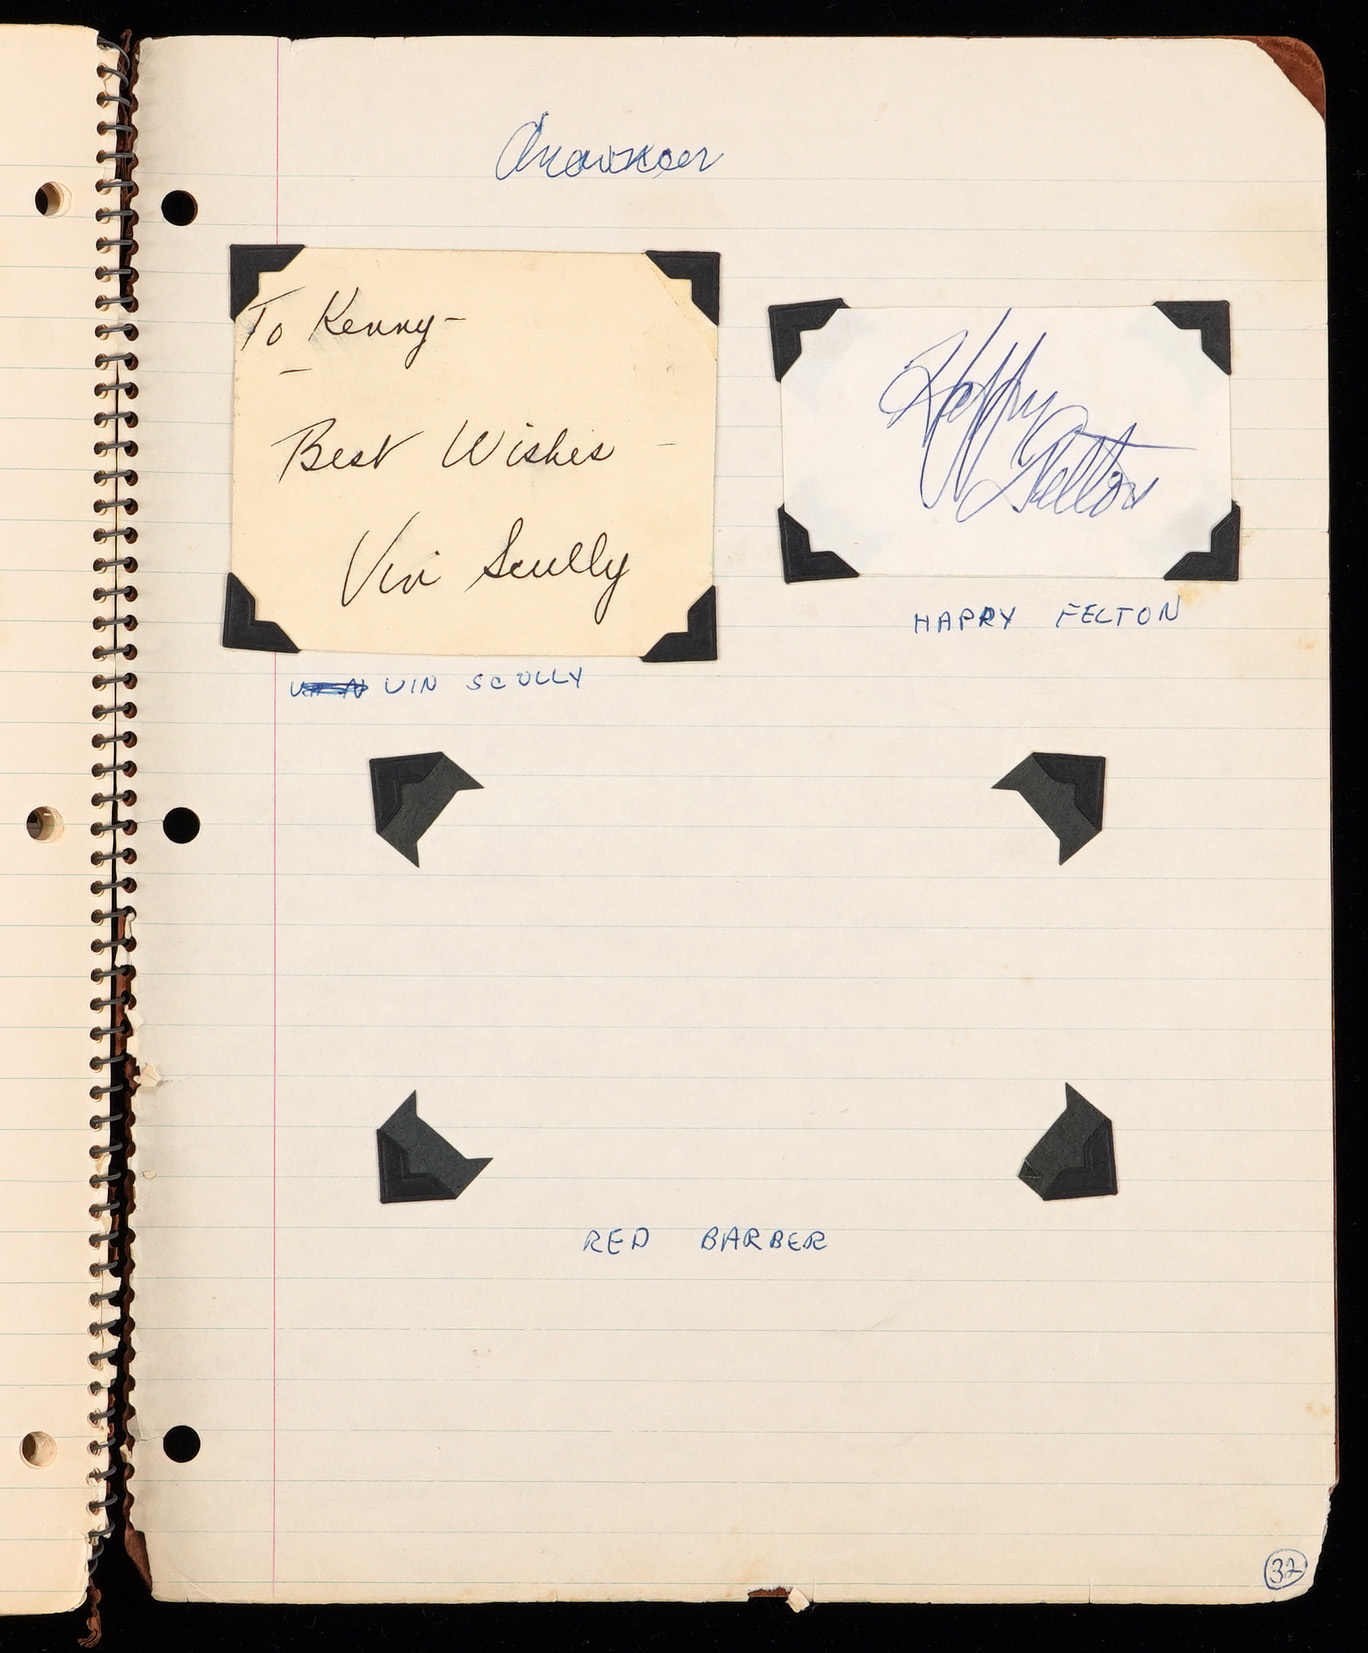 To Kenny-
Best Wishes -
Vin Scully
VIN SCULLY
Happy
Felton
HAPPY FELTON
RED BARBER
32